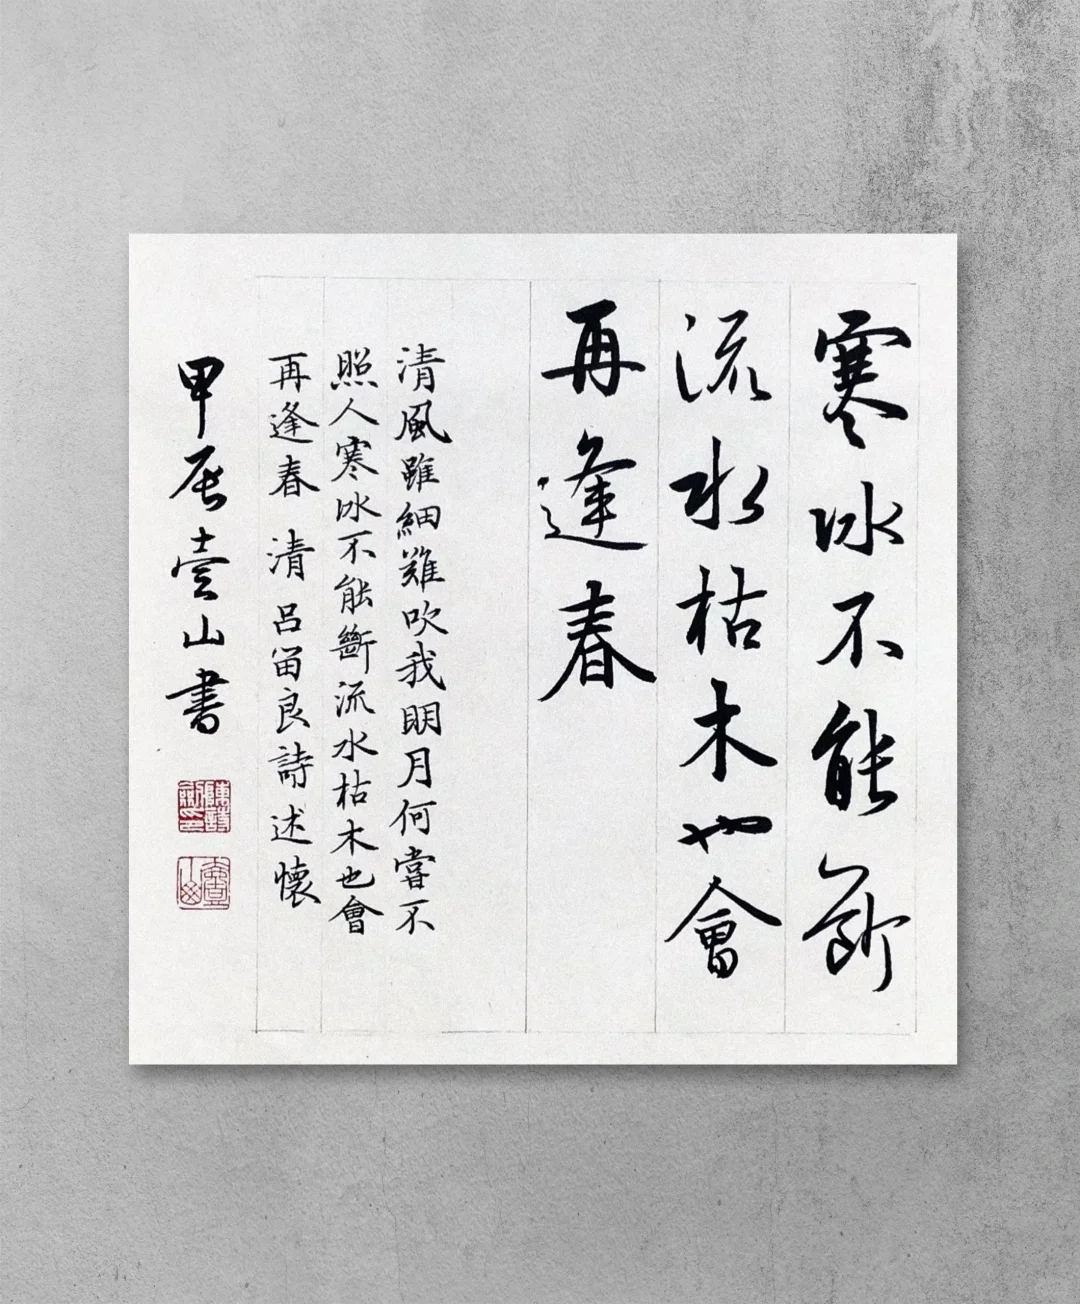 寒冰不能斷
流水枯木也會
再逢春
清風雖細難吹我明月何嘗不
照人寒冰不能斷流水枯木也會
再逢春 清 呂留良詩 述懷
甲辰壹山書